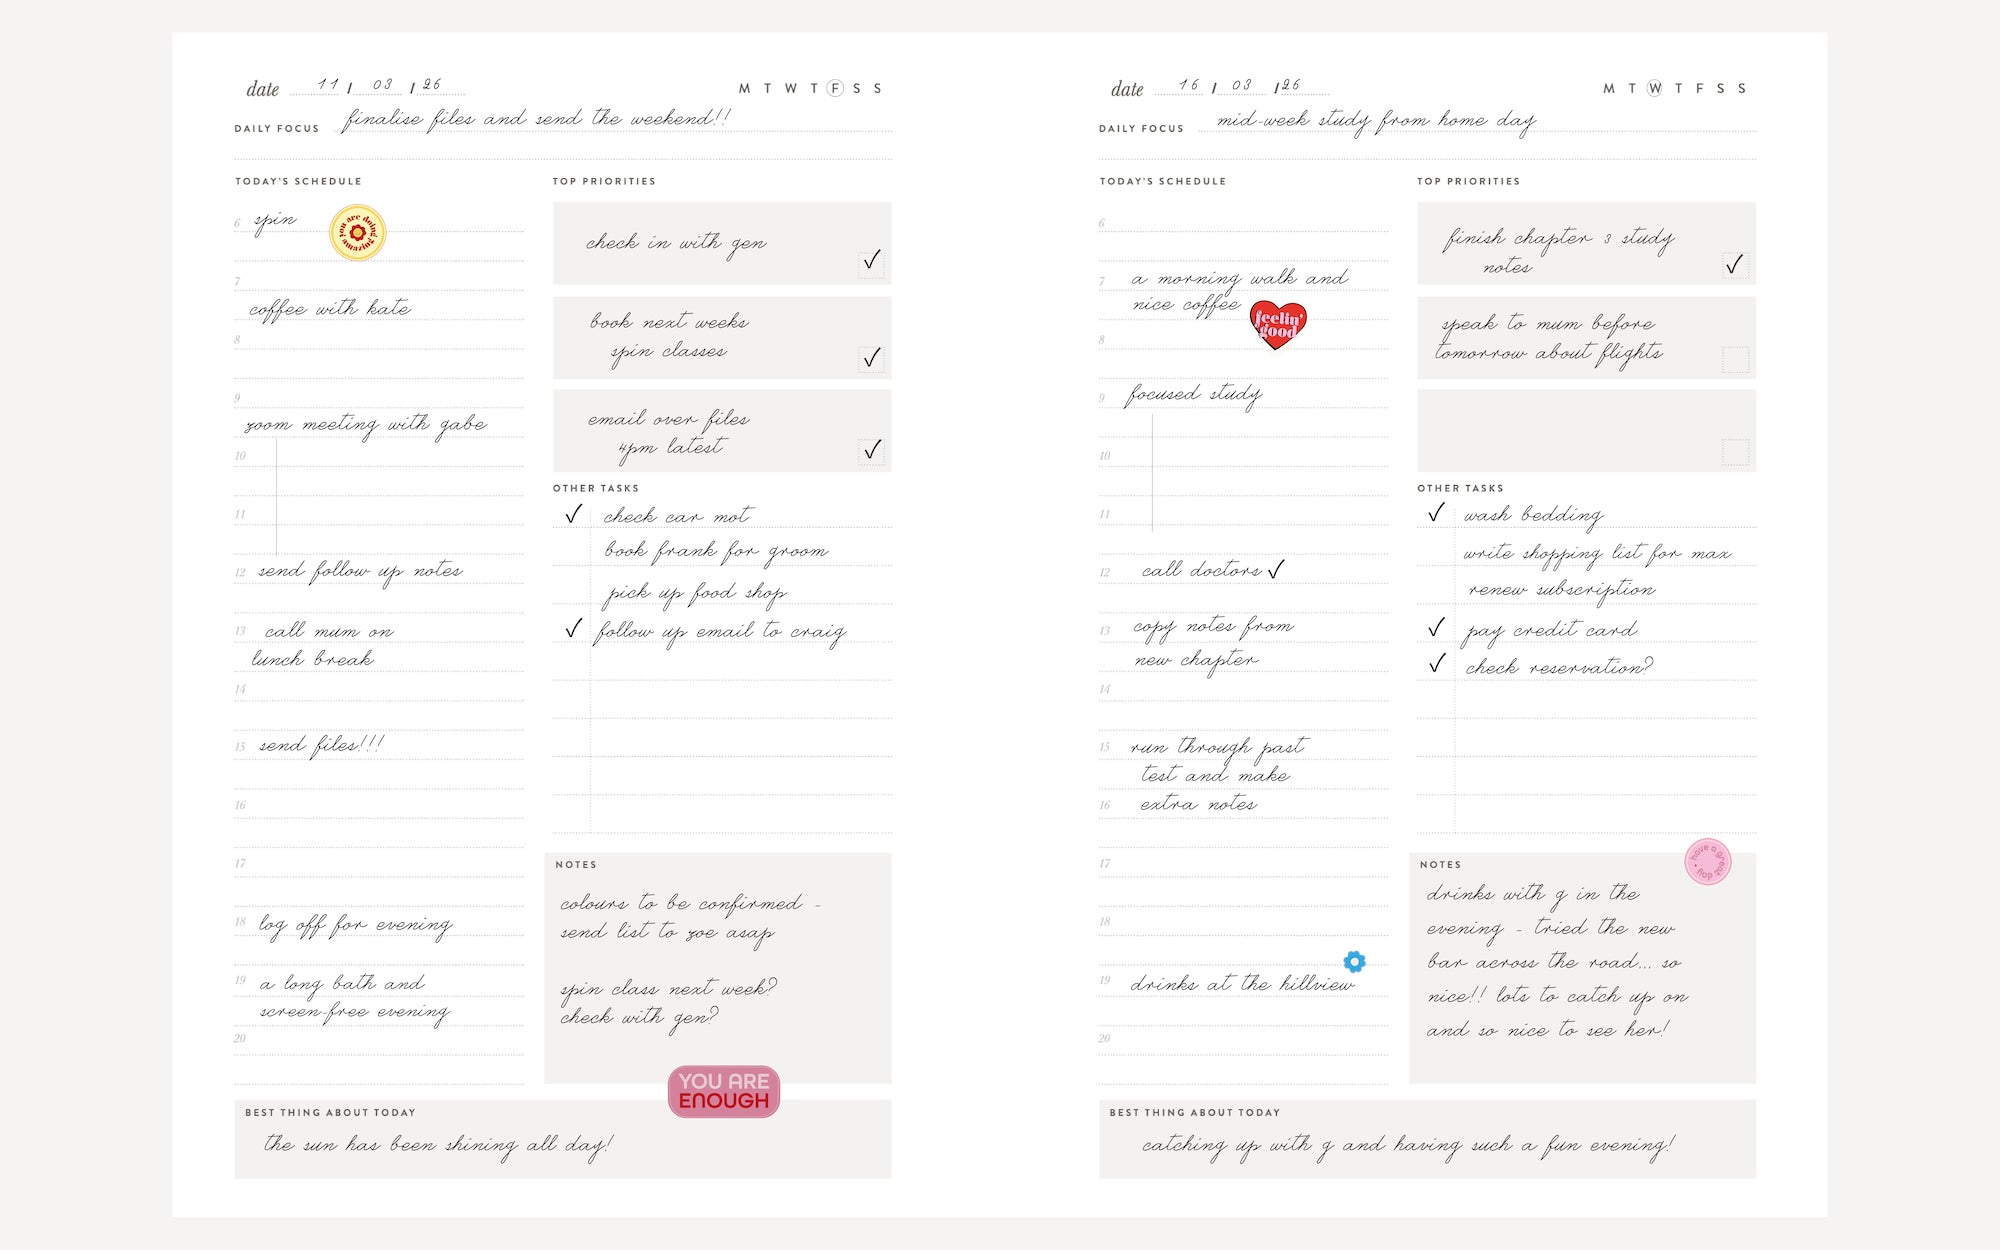 date 11 / 03 / 26
M T W T F S S
DAILY FOCUS finalise files and send the weekend!!
TODAY'S SCHEDULE
6 spin
you are doing amazing
7
coffee with kate
8
9
zoom meeting with gabe
10
11
12 send follow up notes
13 call mum on
lunch break
14
15 send files!!!
16
17
18 log off for evening
19 a long bath and
screen-free evening
20
TOP PRIORITIES
check in with gen ✓
book next weeks
spin classes ✓
email over files
4pm latest ✓
OTHER TASKS
✓ check car mot
book frank for groom
pick up food shop
✓ follow up email to craig
NOTES
colours to be confirmed -
send list to zoe asap
spin class next week?
check with gen?
YOU ARE
ENOUGH
BEST THING ABOUT TODAY
the sun has been shining all day!
date 16 / 03 / 26
M T W T F S S
DAILY FOCUS mid-week study from home day
TODAY'S SCHEDULE
6
7 a morning walk and
nice coffee
feelin'
good
8
9 focused study
10
11
12 call doctors ✓
13 copy notes from
new chapter
14
15 run through past
test and make
16 extra notes
17
18
19 drinks at the hillview
20
TOP PRIORITIES
finish chapter 3 study
notes ✓
speak to mum before
tomorrow about flights
OTHER TASKS
✓ wash bedding
write shopping list for max
renew subscription
✓ pay credit card
✓ check reservation?
have a great day
NOTES
drinks with g in the
evening - tried the new
bar across the road... so
nice!! lots to catch up on
and so nice to see her!
BEST THING ABOUT TODAY
catching up with g and having such a fun evening!